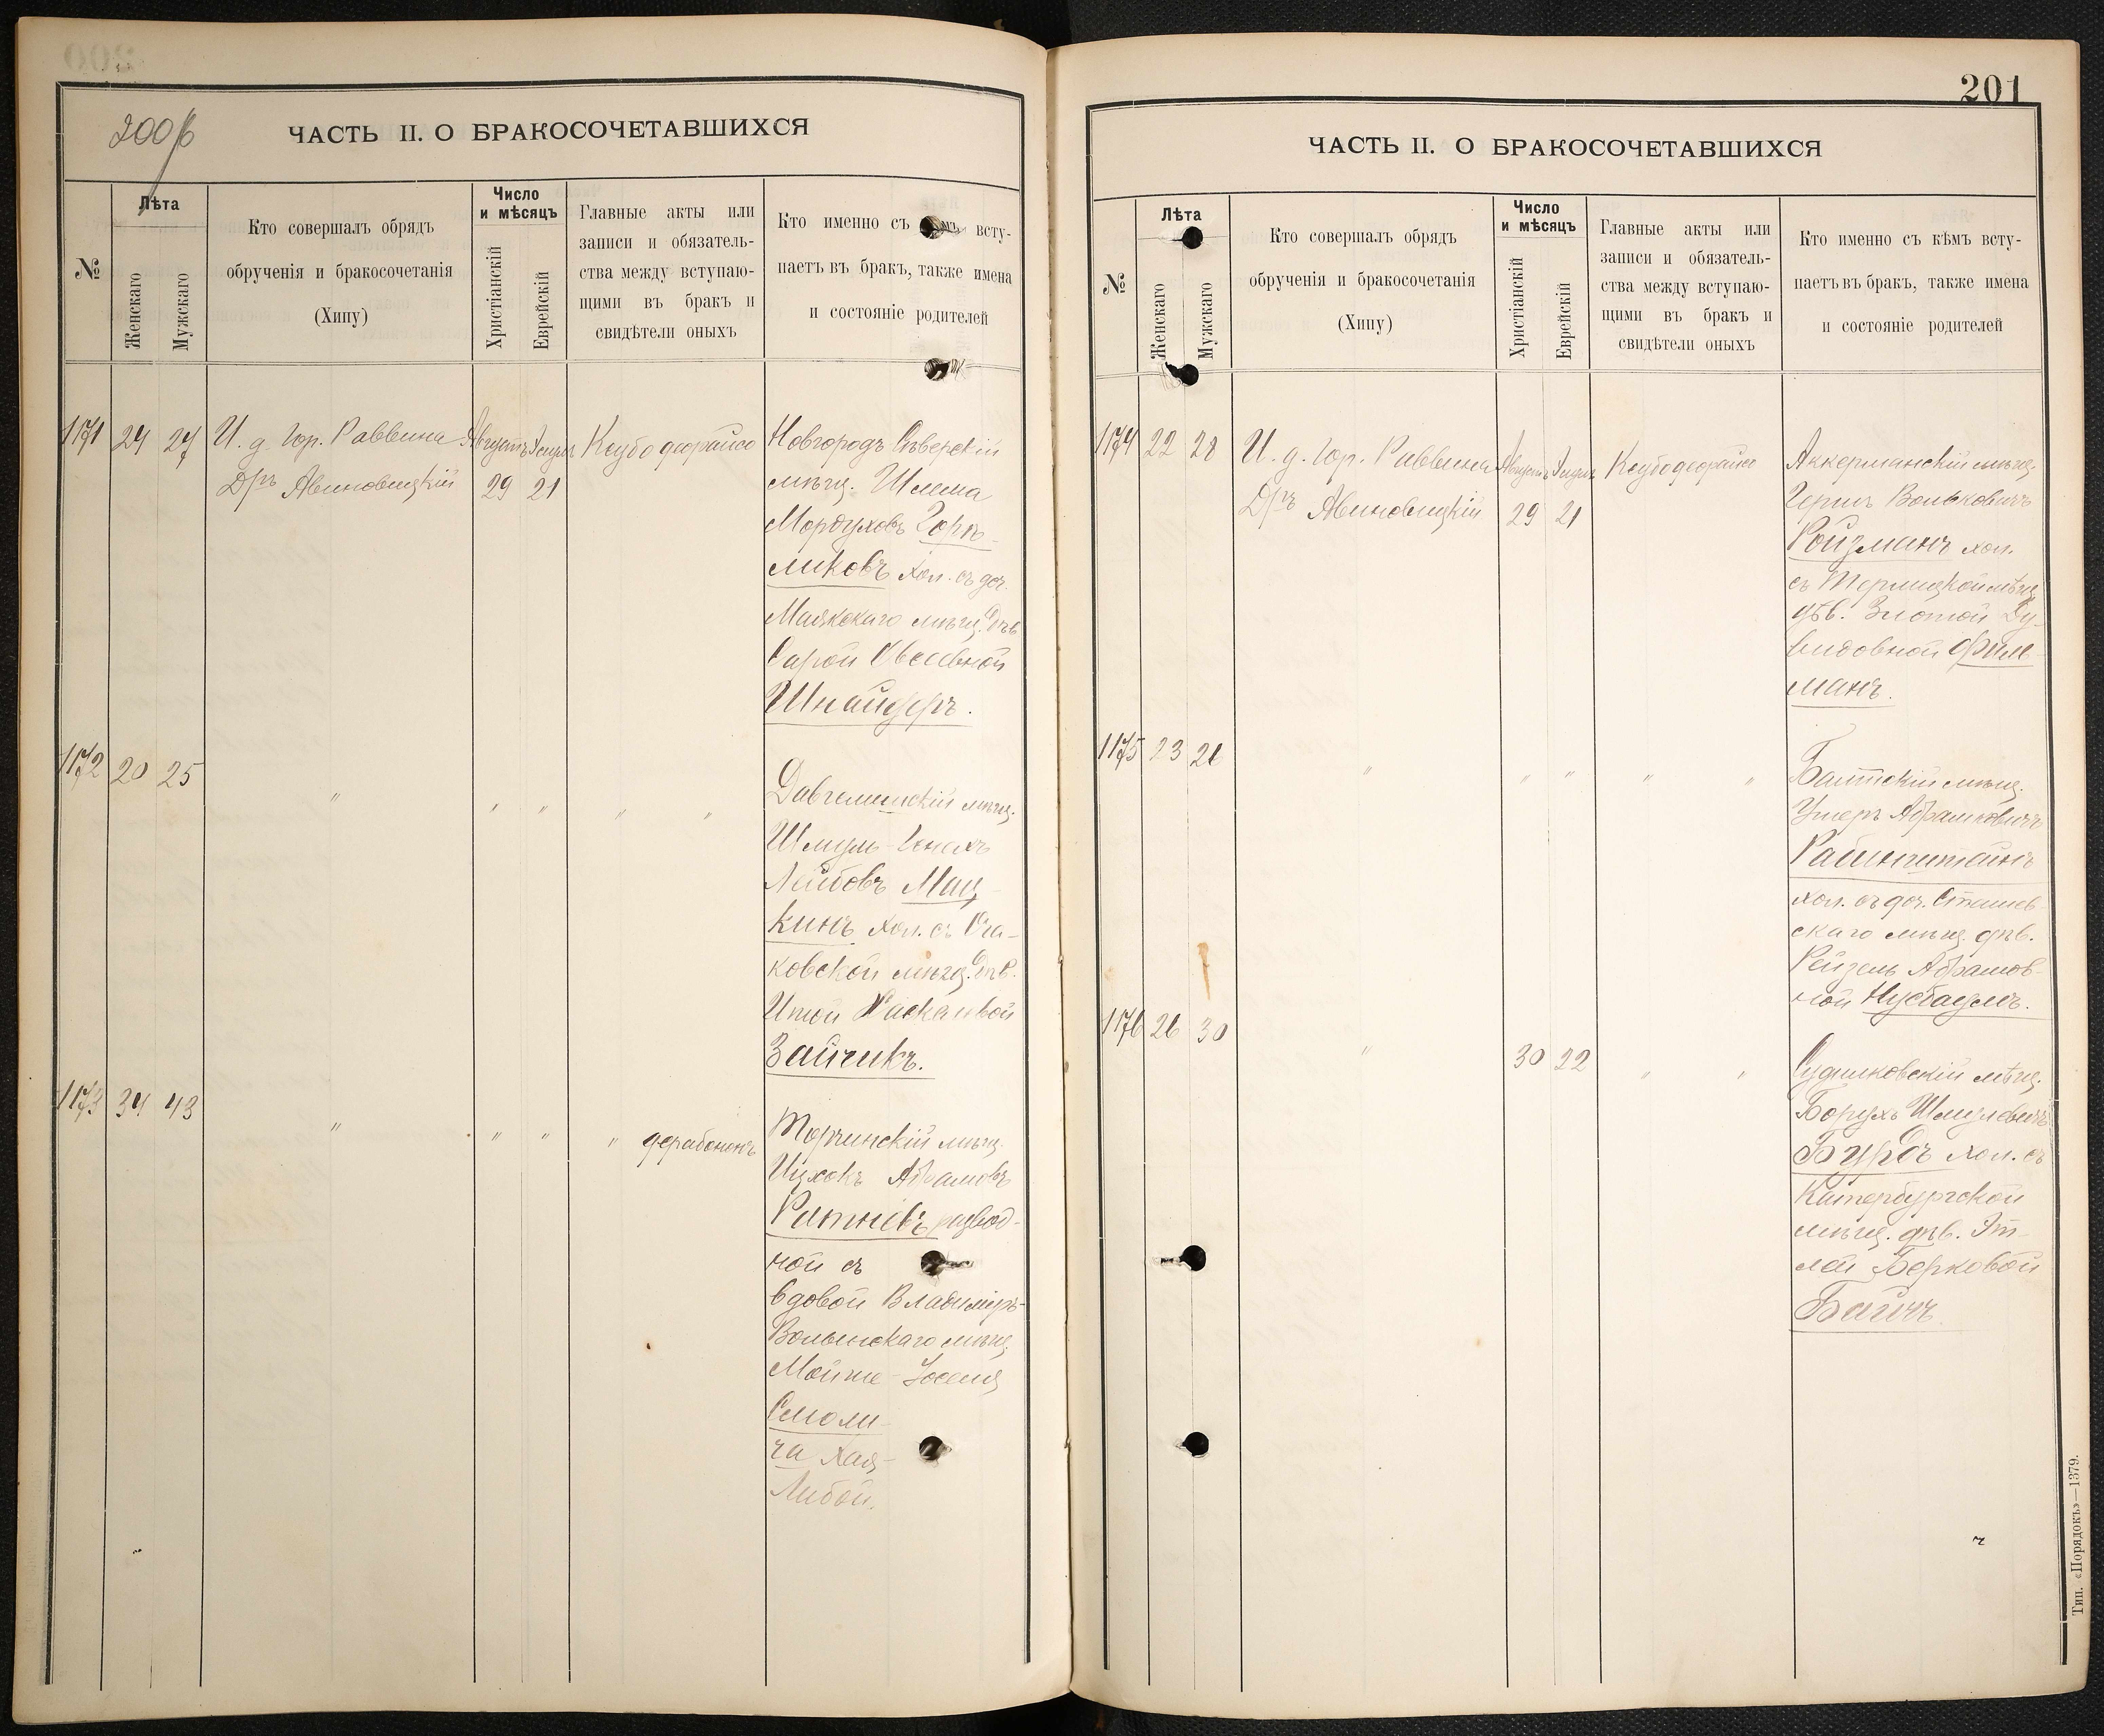 200б
ЧАСТЬ II. О БРАКОСОЧЕТАВШИХСЯ
№
Лѣта
Женскаго
Мужскаго
Кто совершалъ обрядъ
обрученія и бракосочетанія
(Хипу)
Число
и мѣсяцъ
Христіанскій
Еврейскій
Главные акты или
записи и обязатель-
ства между вступаю-
щими въ бракъ и
свидѣтели оныхъ
Кто именно съ всту-
паетъ въ бракъ, также имена
и состояніе родителей
1171 24 27 И. д. Гор. Раввина Августъ Элулъ Ксубо деорайсо
Дръ Авиновицкій 29 21
Новгородъ Сѣверскій
мѣщ. Шлема
Мордуховъ Горѣ-
ликовъ хол. съ доч.
Маякскаго мѣщ. дѣв
Сарой Овсеевной
Шнайдеръ.
1172 20 25 " " " " "
мѣщ.
Шмуль-Генахъ
Лейбовъ Мац-
кинъ хол. съ Оча-
ковской мѣщ. дѣв.
Итой Хаскелевой
Зайчикъ.
1173 34 43 " " " " дерабононъ
Торчинскій мѣщ.
Ицхокъ Абрамовъ
Ратневъ развод-
ной съ
вдовой Владиміръ-
Волынскаго мѣщ.
Мойше-Іосепа
Смоли-
ча Хая-
Либой.
201
ЧАСТЬ II. О БРАКОСОЧЕТАВШИХСЯ
№
Лѣта
Женскаго
Мужскаго
Кто совершалъ обрядъ
обрученія и бракосочетанія
(Хипу)
Число
и мѣсяцъ
Христіанскій
Еврейскій
Главные акты или
записи и обязатель-
ства между вступаю-
щими въ бракъ и
свидѣтели оныхъ
Кто именно съ кѣмъ всту-
паетъ въ бракъ, также имена
и состояніе родителей
1174 22 28 И. д. Гор. Раввина Августъ Элулъ Ксубо деорайсо
Дръ Авиновицкій 29 21
Аккерманскій мѣщ.
Гершъ Вольковичъ
Ройзманъ хол.
съ Терлицкой мѣщ.
дѣв. Злотой Ду-
видовной Фиш-
манъ.
1175 23 26 " " " " "
Балтскій мѣщ.
Ушеръ Абрамовичъ
Рабинштейнъ
хол. съ доч.
скаго мѣщ. дѣв.
Рейзель Абрамов-
ной Нусбаумъ.
1176 26 30 " 30 22 " "
Судилковскій мѣщ.
Борухъ Шмулевичъ
Бурдъ хол. съ
Катербургской
мѣщ. дѣв. Эт-
лей Берковой
Тип. «Порядокъ»—1379.